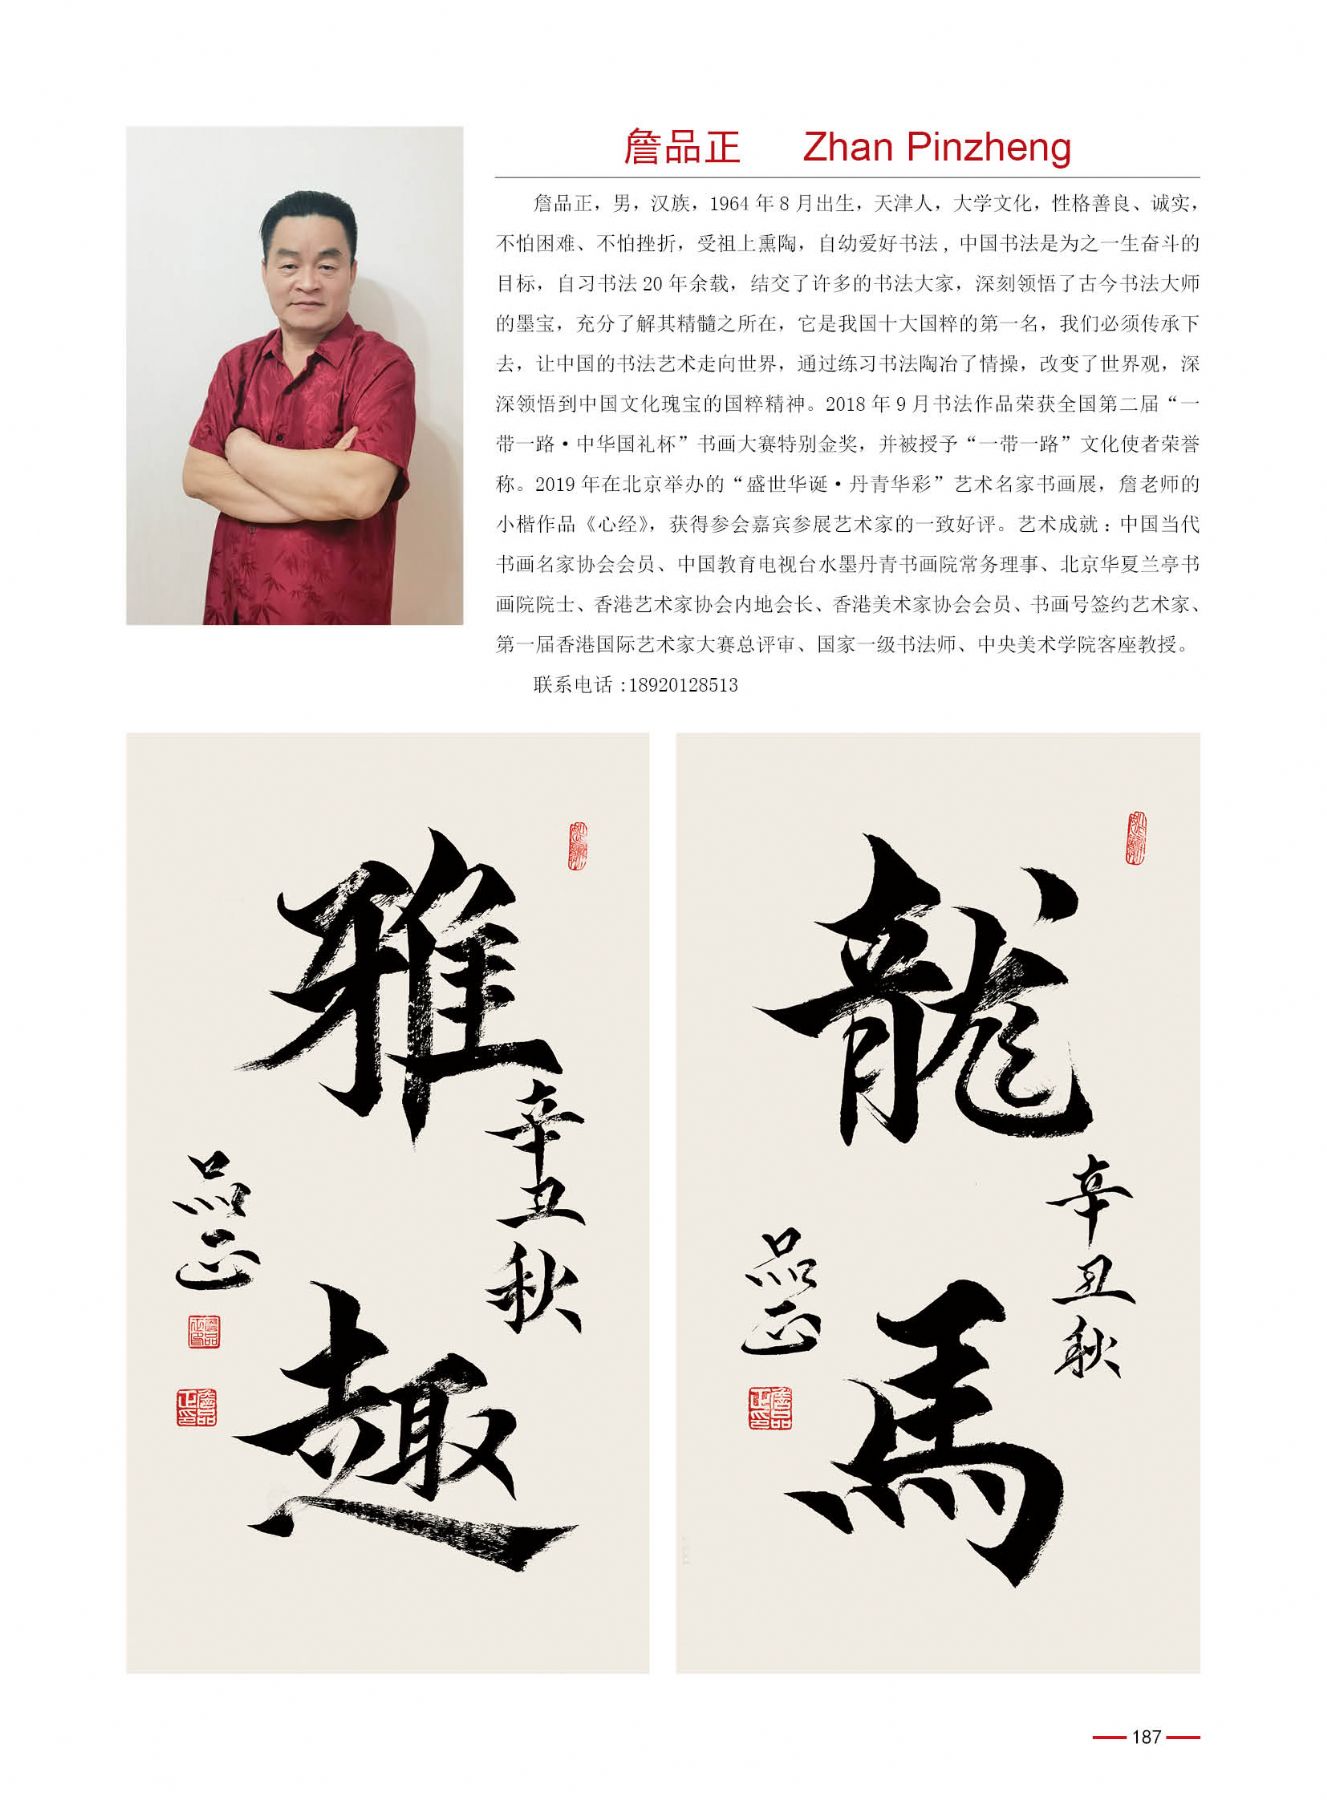 詹品正 Zhan Pinzheng
詹品正，男，汉族，1964 年 8 月出生，天津人，大学文化，性格善良、诚实，
不怕困难、不怕挫折，受祖上熏陶，自幼爱好书法，中国书法是为之一生奋斗的
目标，自习书法 20 年余载，结交了许多的书法大家，深刻领悟了古今书法大师
的墨宝，充分了解其精髓之所在，它是我国十大国粹的第一名，我们必须传承下
去，让中国的书法艺术走向世界，通过练习书法陶冶了情操，改变了世界观，深
深领悟到中国文化瑰宝的国粹精神。2018 年 9 月书法作品荣获全国第二届“一
带一路·中华国礼杯”书画大赛特别金奖，并被授予“一带一路”文化使者荣誉
称。2019 年在北京举办的“盛世华诞·丹青华彩”艺术名家书画展，詹老师的
小楷作品《心经》，获得参会嘉宾参展艺术家的一致好评。艺术成就：中国当代
书画名家协会会员、中国教育电视台水墨丹青书画院常务理事、北京华夏兰亭书
画院院士、香港艺术家协会内地会长、香港美术家协会会员、书画号签约艺术家、
第一届香港国际艺术家大赛总评审、国家一级书法师、中央美术学院客座教授。
联系电话 :18920128513
雅趣
辛丑秋
品正
龍馬
辛丑秋
品正
187